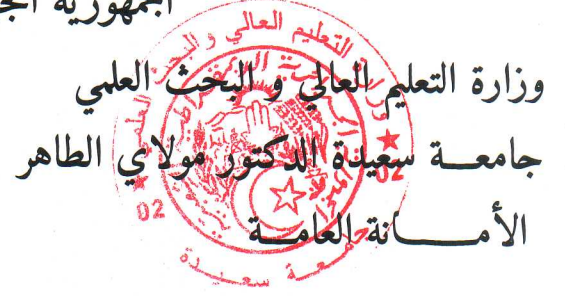 الجمهورية
وزارة التعليم العالي و البحث العلمي
جامعــة سعيدة الدكتور مولاي الطاهر
الأمـــــانة العامــة
وزارة التعليم العالي و البحث العلمي
جامعــة سعيــدة
02
02